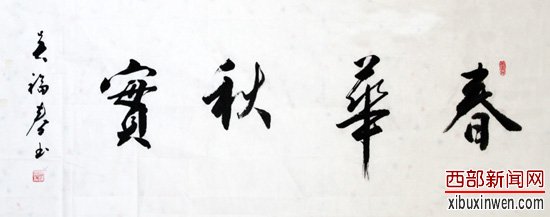 春華秋實
吴福春书
西部新闻网
xibuxinwen.com